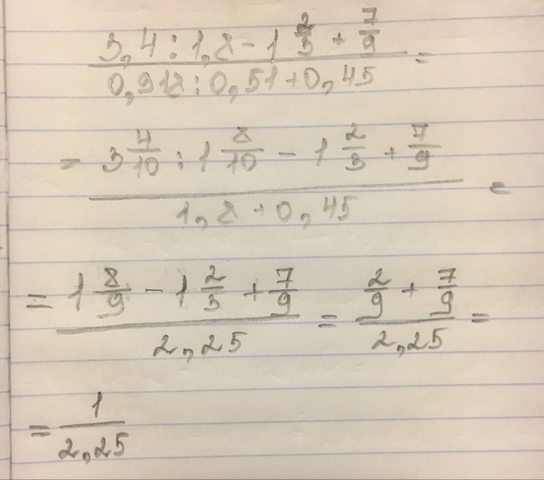 (3,4 : 1,8 - 1 2/3 + 7/9) / (0,918 : 0,51 + 0,45) =
= (3 4/10 : 1 8/10 - 1 2/3 + 7/9) / (1,8 + 0,45) =
= (1 8/9 - 1 2/3 + 7/9) / 2,25 = (2/9 + 7/9) / 2,25 =
= 1 / 2,25